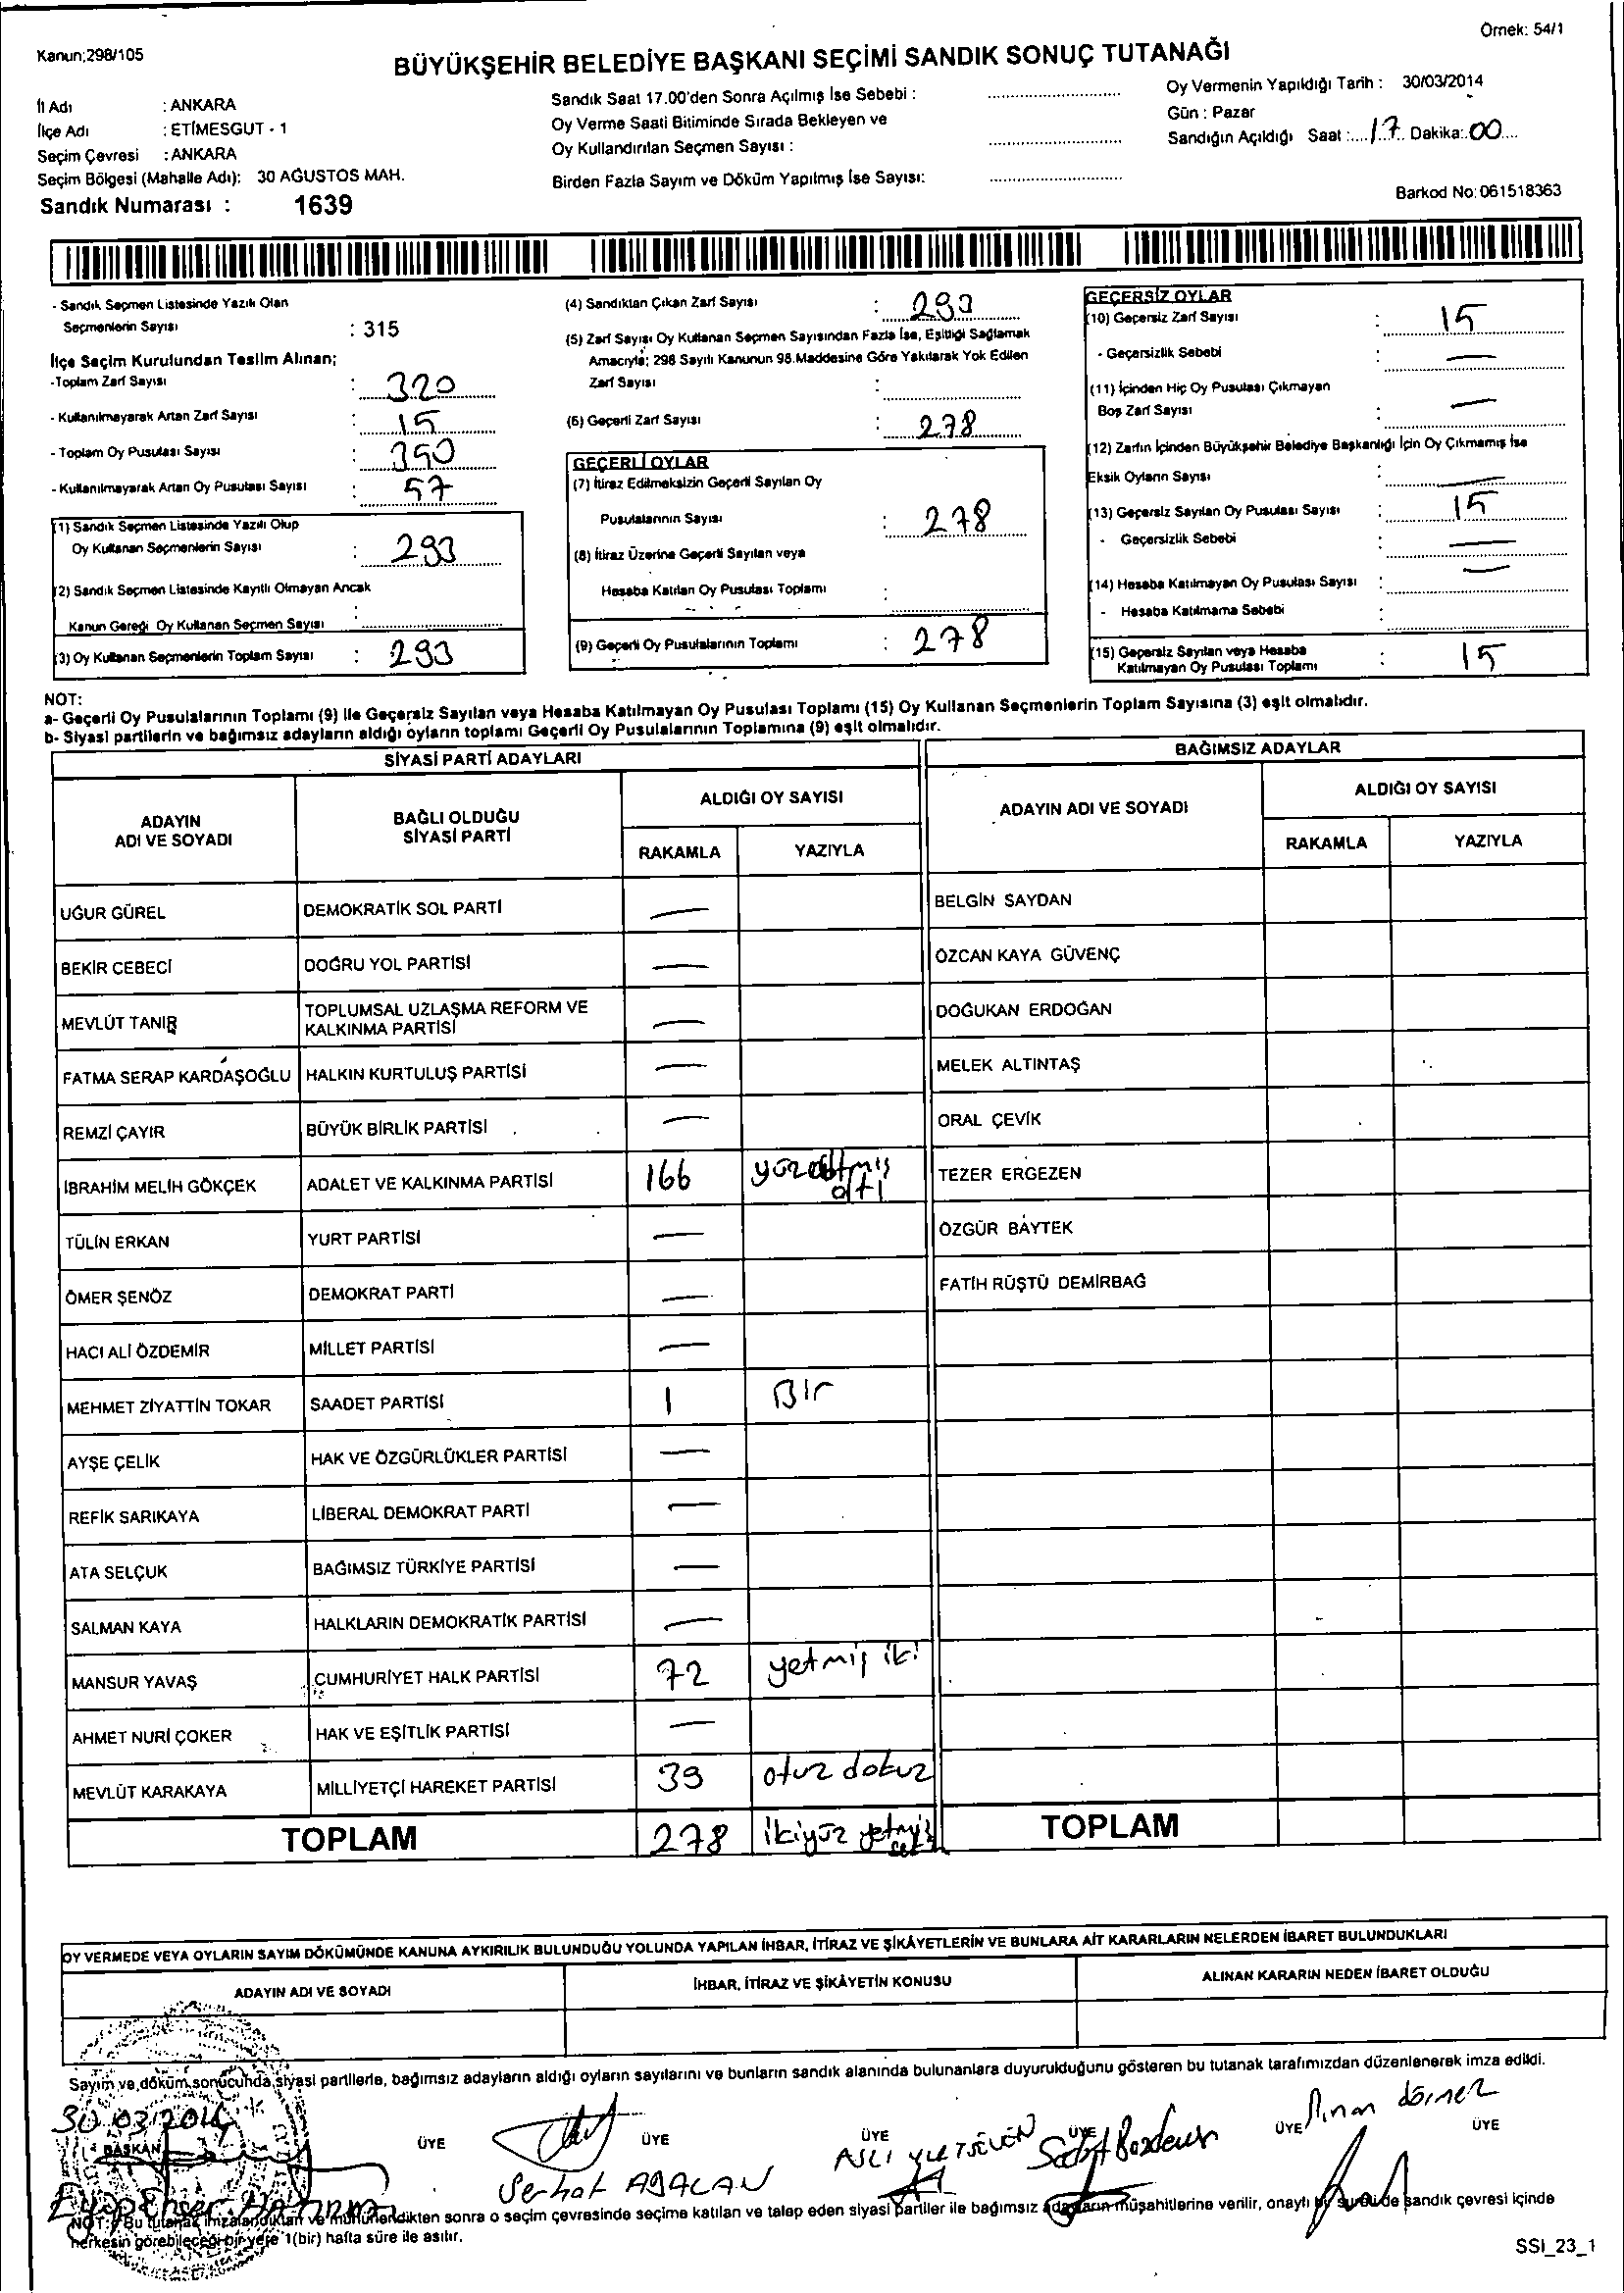 Örnek: 54/1
Kanun;298/105
BÜYÜKŞEHİR BELEDİYE BAŞKANI SEÇİMİ SANDIK SONUÇ TUTANAĞI
İl Adı : ANKARA
İlçe Adı : ETİMESGUT - 1
Seçim Çevresi : ANKARA
Seçim Bölgesi (Mahalle Adı): 30 AĞUSTOS MAH.
Sandık Numarası : 1639
Sandık Saat 17.00'den Sonra Açılmış İse Sebebi :
Oy Verme Saati Bitiminde Sırada Bekleyen ve
Oy Kullandırılan Seçmen Sayısı :
Birden Fazla Sayım ve Döküm Yapılmış İse Sayısı:
Oy Vermenin Yapıldığı Tarih : 30/03/2014
Gün : Pazar
Sandığın Açıldığı Saat :....17.. Dakika:.00....
Barkod No:061518363
- Sandık Seçmen Listesinde Yazılı Olan
Seçmenlerin Sayısı : 315
İlçe Seçim Kurulundan Teslim Alınan;
-Toplam Zarf Sayısı : 320
- Kullanılmayarak Artan Zarf Sayısı : 15
- Toplam Oy Pusulası Sayısı : 350
- Kullanılmayarak Artan Oy Pusulası Sayısı : 57
(1) Sandık Seçmen Listesinde Yazılı Olup
Oy Kullanan Seçmenlerin Sayısı : 293
(2) Sandık Seçmen Listesinde Kayıtlı Olmayan Ancak
Kanun Gereği Oy Kullanan Seçmen Sayısı :
(3) Oy Kullanan Seçmenlerin Toplam Sayısı : 293
(4) Sandıktan Çıkan Zarf Sayısı : 293
(5) Zarf Sayısı Oy Kullanan Seçmen Sayısından Fazla İse, Eşitliği Sağlamak
Amacıyla; 298 Sayılı Kanunun 98.Maddesine Göre Yakılarak Yok Edilen
Zarf Sayısı :
(6) Geçerli Zarf Sayısı : 278
GEÇERLİ OYLAR
(7) İtiraz Edilmeksizin Geçerli Sayılan Oy
Pusulalarının Sayısı : 278
(8) İtiraz Üzerine Geçerli Sayılan veya
Hesaba Katılan Oy Pusulası Toplamı :
(9) Geçerli Oy Pusulalarının Toplamı : 278
GEÇERSİZ OYLAR
(10) Geçersiz Zarf Sayısı : 15
- Geçersizlik Sebebi : —
(11) İçinden Hiç Oy Pusulası Çıkmayan
Boş Zarf Sayısı : —
(12) Zarfın İçinden Büyükşehir Belediye Başkanlığı İçin Oy Çıkmamış İse
Eksik Oyların Sayısı : —
(13) Geçersiz Sayılan Oy Pusulası Sayısı : 15
- Geçersizlik Sebebi : —
(14) Hesaba Katılmayan Oy Pusulası Sayısı : —
- Hesaba Katılmama Sebebi :
(15) Geçersiz Sayılan veya Hesaba
Katılmayan Oy Pusulası Toplamı : 15
NOT:
a- Geçerli Oy Pusulalarının Toplamı (9) ile Geçersiz Sayılan veya Hesaba Katılmayan Oy Pusulası Toplamı (15) Oy Kullanan Seçmenlerin Toplam Sayısına (3) eşit olmalıdır.
b- Siyasi partilerin ve bağımsız adayların aldığı oyların toplamı Geçerli Oy Pusulalarının Toplamına (9) eşit olmalıdır.
SİYASİ PARTİ ADAYLARI
ADAYIN ADI VE SOYADI
BAĞLI OLDUĞU SİYASİ PARTİ
ALDIĞI OY SAYISI
RAKAMLA YAZIYLA
UĞUR GÜREL DEMOKRATİK SOL PARTİ —
BEKİR CEBECİ DOĞRU YOL PARTİSİ —
MEVLÜT TANIR TOPLUMSAL UZLAŞMA REFORM VE KALKINMA PARTİSİ —
FATMA SERAP KARDAŞOĞLU HALKIN KURTULUŞ PARTİSİ —
REMZİ ÇAYIR BÜYÜK BİRLİK PARTİSİ —
İBRAHİM MELİH GÖKÇEK ADALET VE KALKINMA PARTİSİ 166 yüzaltmış altı
TÜLİN ERKAN YURT PARTİSİ —
ÖMER ŞENÖZ DEMOKRAT PARTİ —
HACI ALİ ÖZDEMİR MİLLET PARTİSİ —
MEHMET ZİYATTİN TOKAR SAADET PARTİSİ 1 Bir
AYŞE ÇELİK HAK VE ÖZGÜRLÜKLER PARTİSİ —
REFİK SARIKAYA LİBERAL DEMOKRAT PARTİ —
ATA SELÇUK BAĞIMSIZ TÜRKİYE PARTİSİ —
SALMAN KAYA HALKLARIN DEMOKRATİK PARTİSİ —
MANSUR YAVAŞ CUMHURİYET HALK PARTİSİ 72 yetmiş iki
AHMET NURİ ÇOKER HAK VE EŞİTLİK PARTİSİ —
MEVLÜT KARAKAYA MİLLİYETÇİ HAREKET PARTİSİ 39 otuz dokuz
TOPLAM 278 ikiyüz yetmiş
BAĞIMSIZ ADAYLAR
ADAYIN ADI VE SOYADI
ALDIĞI OY SAYISI
RAKAMLA YAZIYLA
BELGİN SAYDAN
ÖZCAN KAYA GÜVENÇ
DOĞUKAN ERDOĞAN
MELEK ALTINTAŞ
ORAL ÇEVİK
TEZER ERGEZEN
ÖZGÜR BAYTEK
FATİH RÜŞTÜ DEMİRBAĞ
TOPLAM
OY VERMEDE VEYA OYLARIN SAYIM DÖKÜMÜNDE KANUNA AYKIRILIK BULUNDUĞU YOLUNDA YAPILAN İHBAR, İTİRAZ VE ŞİKÂYETLERİN VE BUNLARA AİT KARARLARIN NELERDEN İBARET BULUNDUKLARI
ADAYIN ADI VE SOYADI İHBAR, İTİRAZ VE ŞİKÂYETİN KONUSU ALINAN KARARIN NEDEN İBARET OLDUĞU
Sayım ve döküm sonucunda siyasi partilerle, bağımsız adayların aldığı oyların sayılarını ve bunların sandık alanında bulunanlara duyurulduğunu gösteren bu tutanak tarafımızdan düzenlenerek imza edildi.
30 03 2014
BAŞKAN ÜYE ÜYE ÜYE ÜYE ÜYE ÜYE
Serhat AĞALAN
ASLI
Sinan
NOT: Bu tutanak imzalandıktan ve mühürlendikten sonra o seçim çevresinde seçime katılan ve talep eden siyasi partiler ile bağımsız adayların müşahitlerine verilir, onaylı bir sureti de sandık çevresi içinde
herkesin görebileceği bir yere 1(bir) hafta süre ile asılır.
SSI_23_1